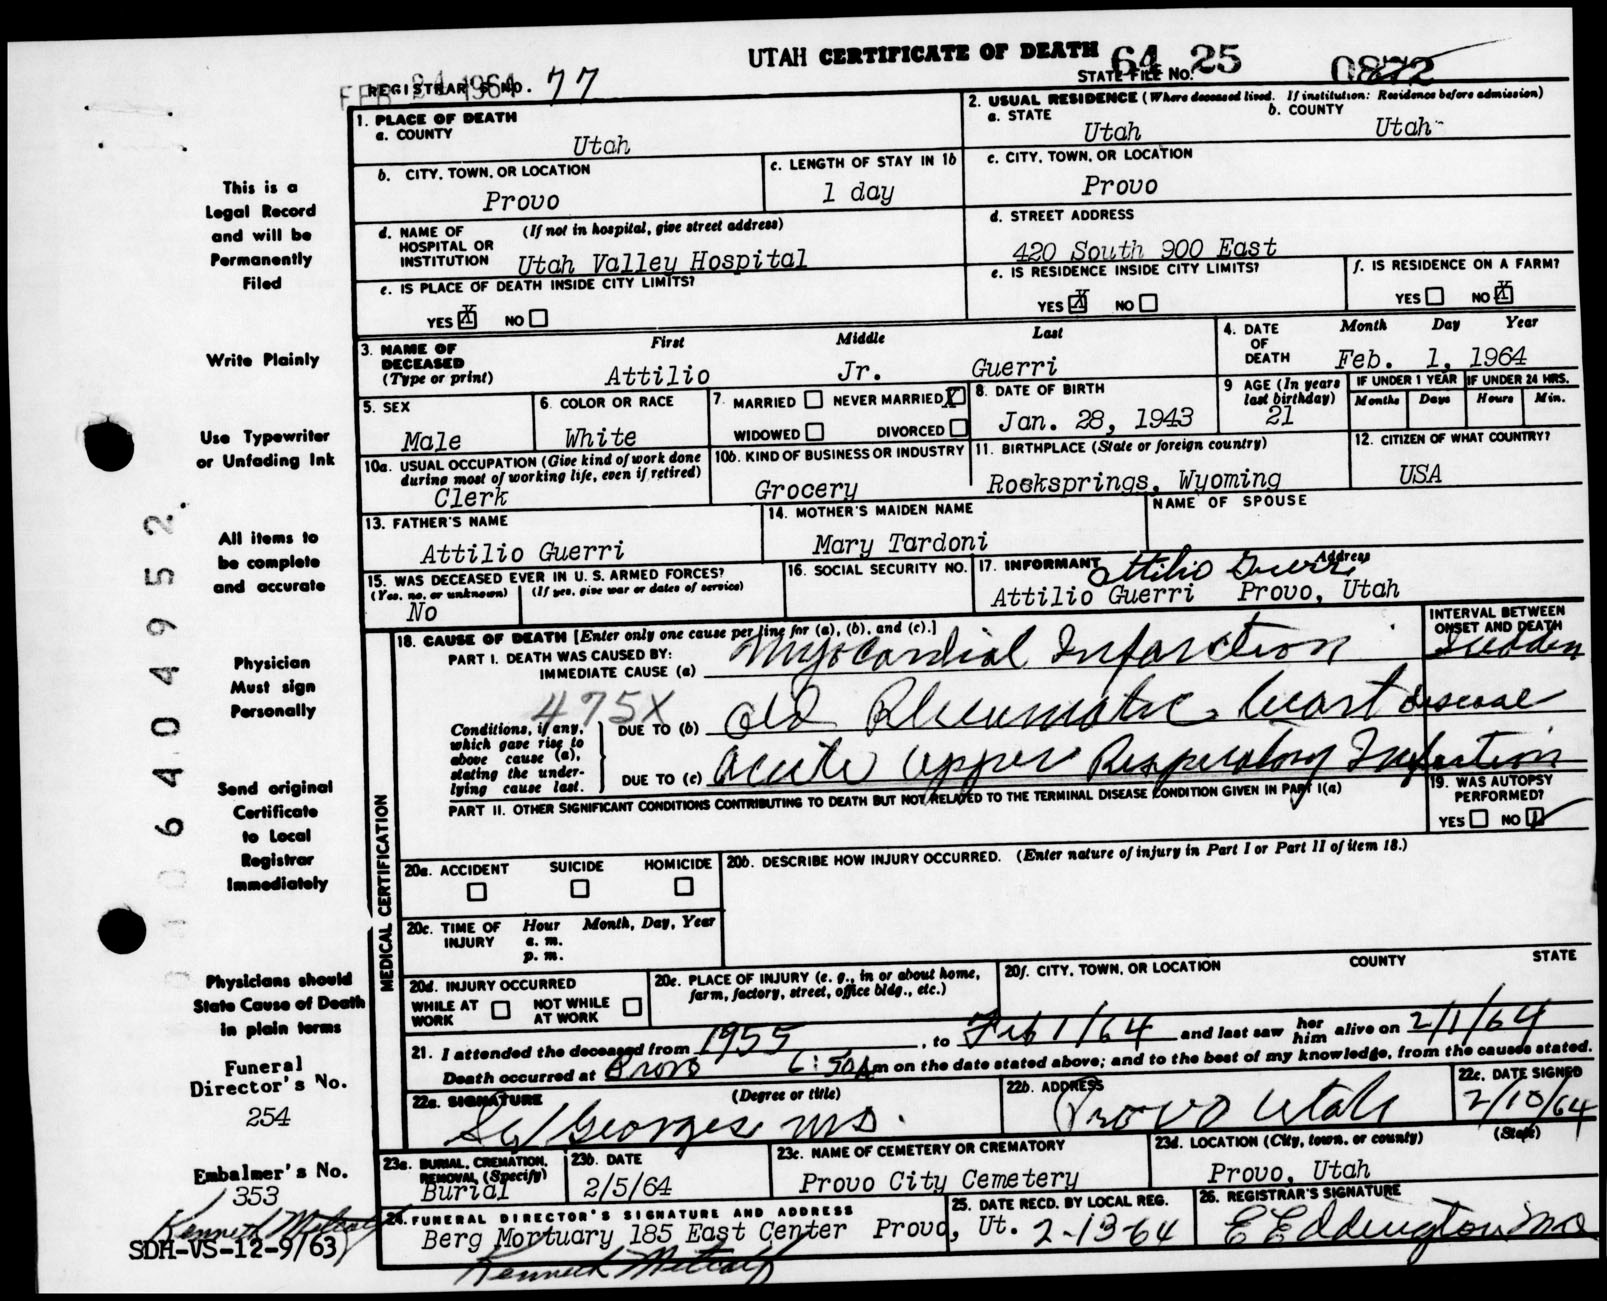 UTAH CERTIFICATE OF DEATH
FEB 24 1964
REGISTRAR'S NO. 77
STATE FILE NO. 64 25 0872
1. PLACE OF DEATH
a. COUNTY
Utah
2. USUAL RESIDENCE (Where deceased lived. If institution: Residence before admission)
a. STATE
Utah
b. COUNTY
Utah
b. CITY, TOWN, OR LOCATION
Provo
c. LENGTH OF STAY IN 1b
1 day
c. CITY, TOWN, OR LOCATION
Provo
d. NAME OF HOSPITAL OR INSTITUTION
(If not in hospital, give street address)
Utah Valley Hospital
d. STREET ADDRESS
420 South 900 East
e. IS PLACE OF DEATH INSIDE CITY LIMITS?
YES X NO
e. IS RESIDENCE INSIDE CITY LIMITS?
YES X NO
f. IS RESIDENCE ON A FARM?
YES NO X
3. NAME OF DECEASED (Type or print)
First Middle Last
Attilio Jr. Guerri
4. DATE OF DEATH
Month Day Year
Feb. 1, 1964
5. SEX
Male
6. COLOR OR RACE
White
7. MARRIED NEVER MARRIED X
WIDOWED DIVORCED
8. DATE OF BIRTH
Jan. 28, 1943
9 AGE (In years last birthday)
21
IF UNDER 1 YEAR
Months Days
IF UNDER 24 HRS.
Hours Min.
10a. USUAL OCCUPATION (Give kind of work done during most of working life, even if retired)
Clerk
10b. KIND OF BUSINESS OR INDUSTRY
Grocery
11. BIRTHPLACE (State or foreign country)
Rocksprings, Wyoming
12. CITIZEN OF WHAT COUNTRY?
USA
13. FATHER'S NAME
Attilio Guerri
14. MOTHER'S MAIDEN NAME
Mary Tardoni
NAME OF SPOUSE
15. WAS DECEASED EVER IN U. S. ARMED FORCES?
(Yes, no, or unknown) (If yes, give war or dates of service)
No
16. SOCIAL SECURITY NO.
17. INFORMANT Address
Attilio Guerri
Attilio Guerri Provo, Utah
MEDICAL CERTIFICATION
18. CAUSE OF DEATH [Enter only one cause per line for (a), (b), and (c).]
INTERVAL BETWEEN ONSET AND DEATH
PART I. DEATH WAS CAUSED BY:
IMMEDIATE CAUSE (a) Myocardial Infarction
Sudden
475X
Conditions, if any, which gave rise to above cause (a), stating the underlying cause last.
DUE TO (b) Old Rheumatic heart disease
DUE TO (c) Acute Upper Respiratory Infection
PART II. OTHER SIGNIFICANT CONDITIONS CONTRIBUTING TO DEATH BUT NOT RELATED TO THE TERMINAL DISEASE CONDITION GIVEN IN PART I(a)
19. WAS AUTOPSY PERFORMED?
YES NO
20a. ACCIDENT SUICIDE HOMICIDE
20b. DESCRIBE HOW INJURY OCCURRED. (Enter nature of injury in Part I or Part II of item 18.)
20c. TIME OF INJURY
Hour Month, Day, Year
a. m.
p. m.
20d. INJURY OCCURRED
WHILE AT WORK NOT WHILE AT WORK
20e. PLACE OF INJURY (e. g., in or about home, farm, factory, street, office bldg., etc.)
20f. CITY, TOWN, OR LOCATION COUNTY STATE
21. I attended the deceased from 1955, to Feb 1/64 and last saw her him alive on 2/1/64
Death occurred at Provo 6:50 A m on the date stated above; and to the best of my knowledge, from the causes stated.
22a. SIGNATURE (Degree or title)
Georges MD.
22b. ADDRESS
Provo Utah
22c. DATE SIGNED
2/10/64
23a. BURIAL, CREMATION, REMOVAL (Specify)
Burial
23b. DATE
2/5/64
23c. NAME OF CEMETERY OR CREMATORY
Provo City Cemetery
23d. LOCATION (City, town, or county) (State)
Provo, Utah
24. FUNERAL DIRECTOR'S SIGNATURE AND ADDRESS
Berg Mortuary 185 East Center Provo, Ut.
Kenneth Metcalf
25. DATE RECD. BY LOCAL REG.
2-13-64
26. REGISTRAR'S SIGNATURE
E Eddington MD
This is a
Legal Record
and will be
Permanently
Filed
Write Plainly
Use Typewriter
or Unfading Ink
All items to
be complete
and accurate
Physician
Must sign
Personally
Send original
Certificate
to Local
Registrar
Immediately
Physicians should
State Cause of Death
in plain terms
Funeral
Director's No.
254
Embalmer's No.
1353
Kenneth Metcalf
SDH-VS-12-9/63
0106404952